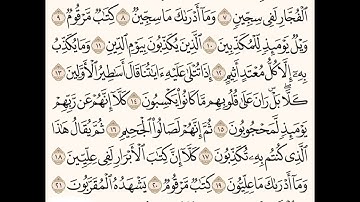 ٱلۡفُجَّارِ لَفِي سِجِّينٖ ٧ وَمَآ أَدۡرَىٰكَ مَا سِجِّينٞ ٨ كِتَٰبٞ مَّرۡقُومٞ ٩
وَيۡلٞ يَوۡمَئِذٖ لِّلۡمُكَذِّبِينَ ١٠ ٱلَّذِينَ يُكَذِّبُونَ بِيَوۡمِ ٱلدِّينِ ١١ وَمَا يُكَذِّبُ
بِهِۦٓ إِلَّا كُلُّ مُعۡتَدٍ أَثِيمٍ ١٢ إِذَا تُتۡلَىٰ عَلَيۡهِ ءَايَٰتُنَا قَالَ أَسَٰطِيرُ ٱلۡأَوَّلِينَ ١٣
كَلَّاۖ بَلۡۜ رَانَ عَلَىٰ قُلُوبِهِم مَّا كَانُواْ يَكۡسِبُونَ ١٤ كَلَّآ إِنَّهُمۡ عَن رَّبِّهِمۡ
يَوۡمَئِذٖ لَّمَحۡجُوبُونَ ١٥ ثُمَّ إِنَّهُمۡ لَصَالُواْ ٱلۡجَحِيمِ ١٦ ثُمَّ يُقَالُ هَٰذَا
ٱلَّذِي كُنتُم بِهِۦ تُكَذِّبُونَ ١٧ كَلَّآ إِنَّ كِتَٰبَ ٱلۡأَبۡرَارِ لَفِي عِلِّيِّينَ ١٨
وَمَآ أَدۡرَىٰكَ مَا عِلِّيُّونَ ١٩ كِتَٰبٞ مَّرۡقُومٞ ٢٠ يَشۡهَدُهُ ٱلۡمُقَرَّبُونَ ٢١